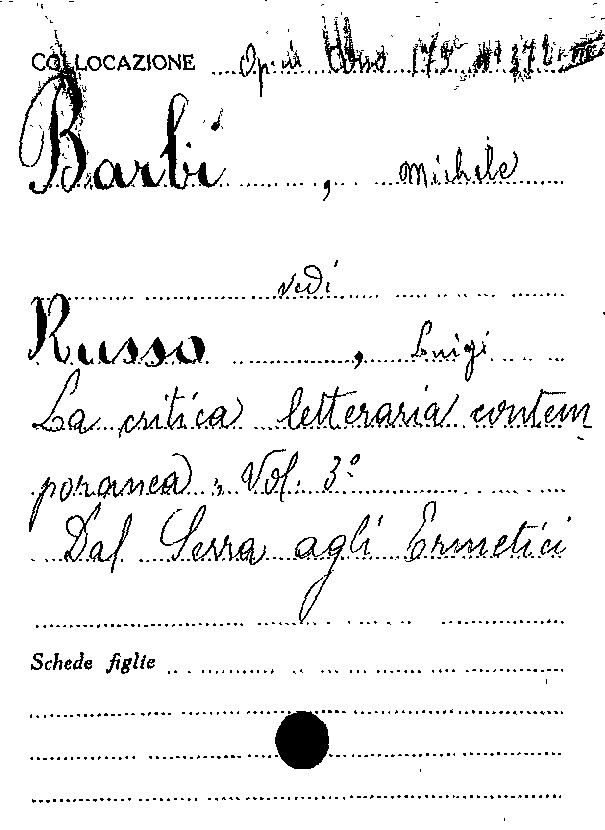 COLLOCAZIONE
Barbi, Michele
vedi
Russo, Luigi
La critica letteraria contem
poranea, Vol. 3°
Dal Serra agli Ermetici
Schede figlie